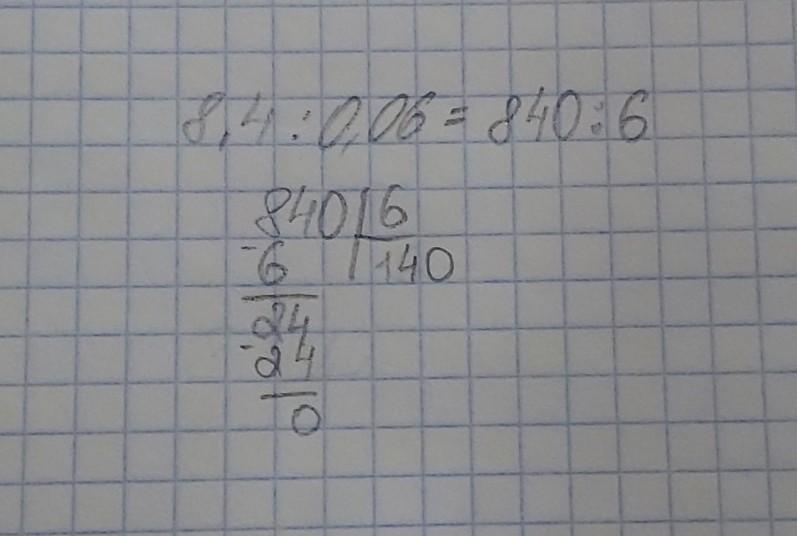 8,4 : 0,06 = 840 : 6
840 | 6
- 6 | 140
24
- 24
0